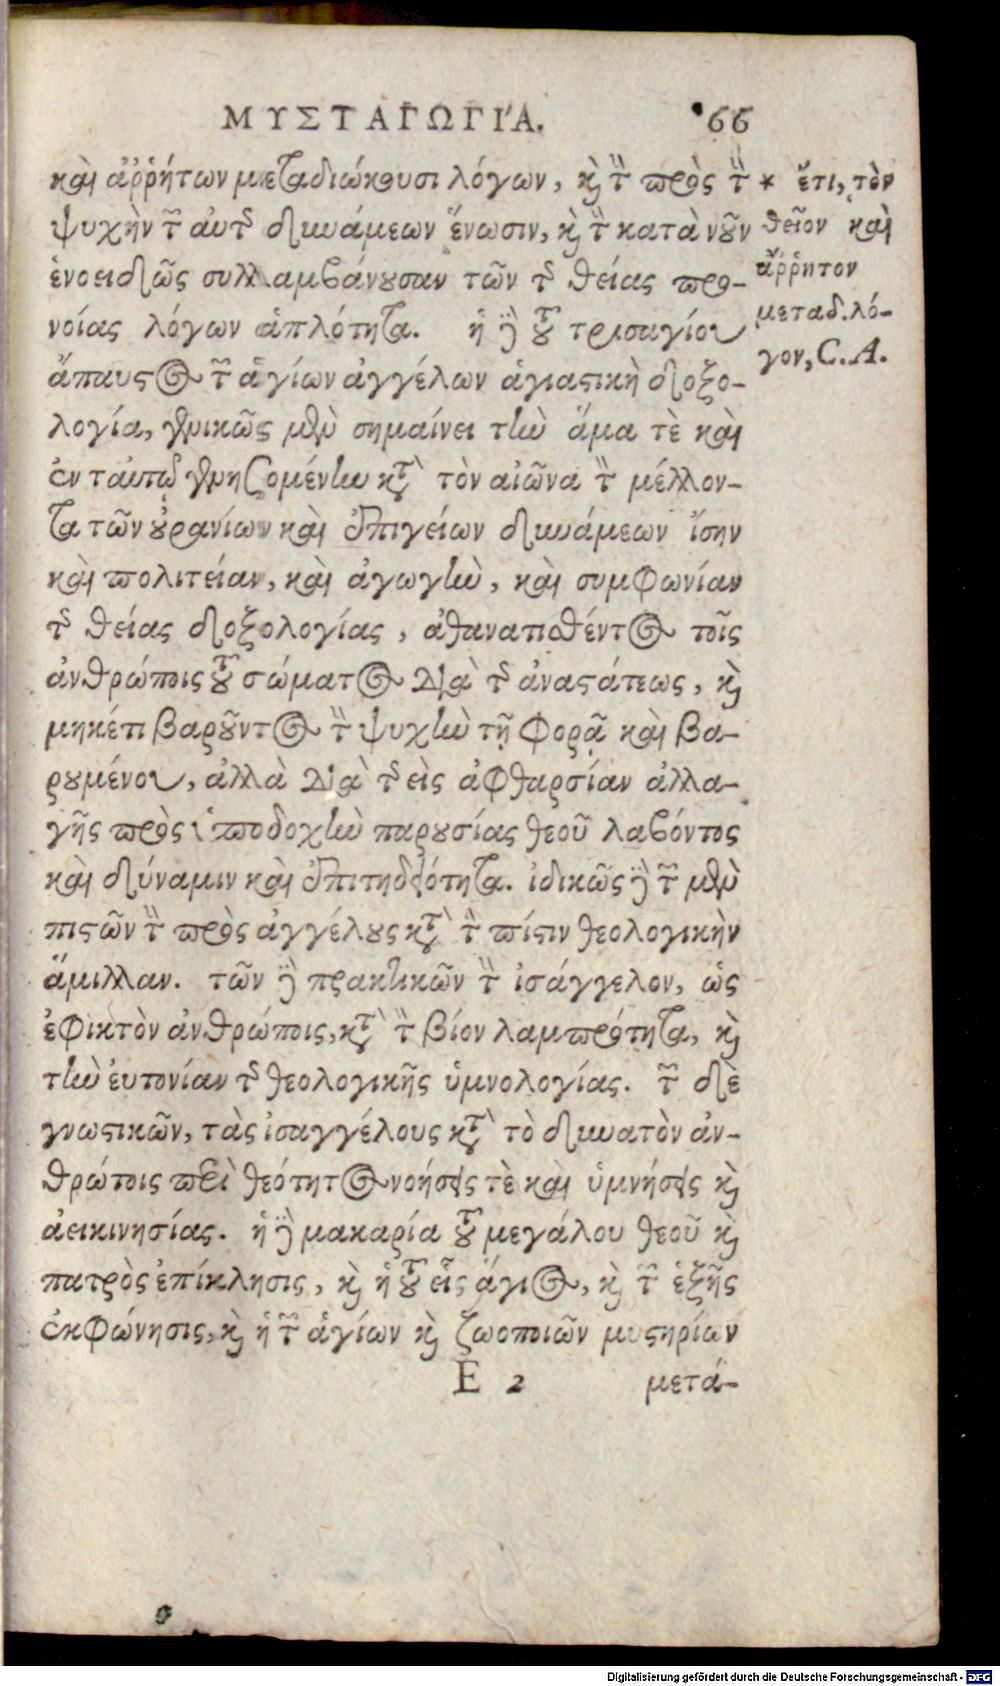 ΜΥΣΤΑΓΩΓΙ'Α. 66
καὶ ἀῤῥήτων μεταδιώκουσι λόγων, κὶ τὴν πρὸς τὴν * ἔτι, τὸν
ψυχὴν τῶν αὐτῆς δυνάμεων ἕνωσιν, κὶ τὴν κατὰ νοῦν θεῖον καὶ
ἑνοειδῶς συλλαμβάνουσαν τῶν τῆς θείας προ- ἄῤῥητον
νοίας λόγων ἁπλότητα. ἡ δὲ τοῦ τρισαγίου μεταδ. λό-
ἄπαυστος τῶν ἁγίων ἀγγέλων ἁγιαστικὴ δοξο- γον, C. A.
λογία, γενικῶς μὲν σημαίνει τὴν ἅμα τὲ καὶ
ἐν ταὐτῷ γενησομένην κατὰ τὸν αἰῶνα τὸν μέλλον-
τα τῶν οὐρανίων καὶ ἐπιγείων δυνάμεων ἴσην
καὶ πολιτείαν, καὶ ἀγωγὴν, καὶ συμφωνίαν
τῆς θείας δοξολογίας, ἀθανατισθέντος τοῖς
ἀνθρώποις τοῦ σώματος διὰ τῆς ἀναστάσεως, κὶ
μηκέτι βαροῦντος τὴν ψυχὴν τῇ φθορᾷ καὶ βα-
ρουμένου, ἀλλὰ διὰ τῆς εἰς ἀφθαρσίαν ἀλλα-
γῆς πρὸς ὑποδοχὴν παρουσίας θεοῦ λαβόντος
καὶ δύναμιν καὶ ἐπιτηδειότητα. ἰδικῶς δὲ τῶν μὲν
πιστῶν τὴν πρὸς ἀγγέλους κατὰ τὴν πίστιν θεολογικὴν
ἅμιλλαν. τῶν δὲ πρακτικῶν τὴν ἰσάγγελον, ὡς
ἐφικτὸν ἀνθρώποις, κατὰ τὸν βίον λαμπρότητα, κὶ
τὴν εὐτονίαν τῆς θεολογικῆς ὑμνολογίας. τῶν δὲ
γνωστικῶν, τὰς ἰσαγγέλους κατὰ τὸ δυνατὸν ἀν-
θρώποις περὶ θεότητος νοήσεις τὲ καὶ ὑμνήσεις κὶ
ἀεικινησίας. ἡ δὲ μακαρία τοῦ μεγάλου θεοῦ κὶ
πατρὸς ἐπίκλησις, κὶ ἡ τοῦ εἷς ἅγιος, κὶ τῶν ἑξῆς
ἐκφώνησις, κὶ ἡ τῶν ἁγίων κὶ ζωοποιῶν μυστηρίων
E 2 μετά-
Digitalisierung gefördert durch die Deutsche Forschungsgemeinschaft - DFG